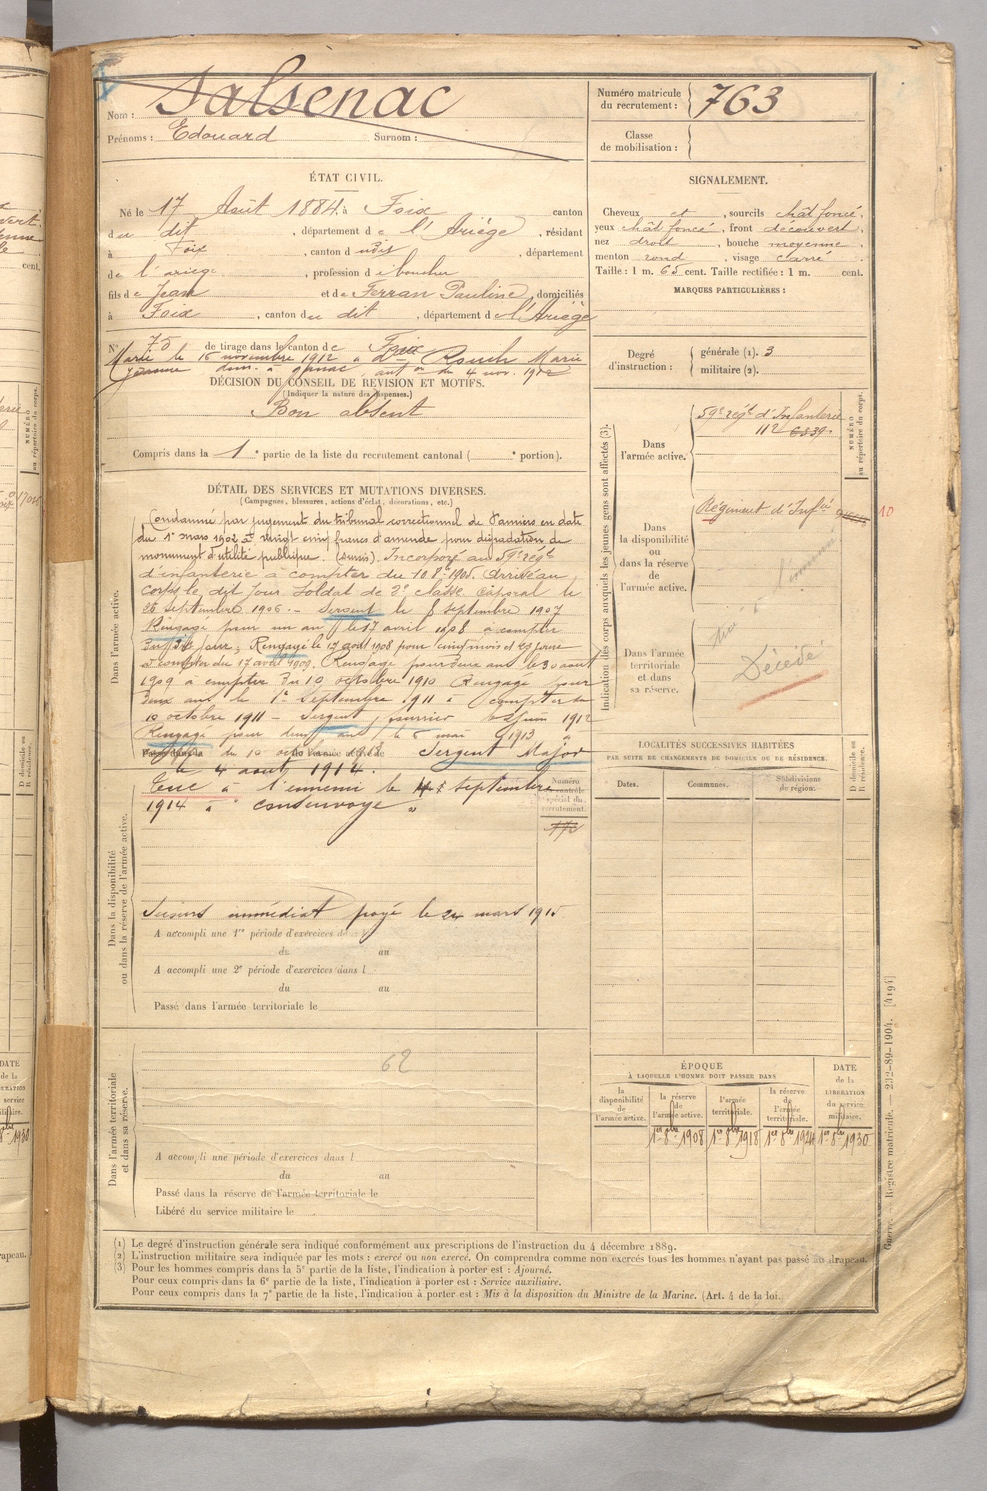 Nom : Salsenac
Prénoms : Edouard Surnom :
Numéro matricule du recrutement : 763
Classe de mobilisation :
ÉTAT CIVIL.
Né le 17 Août 1884 à Foix canton
du dit, département de l'Ariège, résidant
à Foix, canton dudit, département
de l'ariege, profession de boucher
fils de Jean et de Ferran Pauline, domiciliés
à Foix, canton du dit, département de l'Ariège
N° 75 de tirage dans le canton de Foix
Marié le 16 novembre 1912 à dlle Rouch Marie
Jeanne dom. à auton du 4 nov. 1912
DÉCISION DU CONSEIL DE REVISION ET MOTIFS.
(Indiquer la nature des dispenses.)
Bon absent
Compris dans la 1e partie de la liste du recrutement cantonal ( e portion).
SIGNALEMENT.
Cheveux et, sourcils chât foncé,
yeux chât foncé, front découvert,
nez droit, bouche moyenne,
menton rond, visage carré.
Taille : 1 m. 65 cent. Taille rectifiée : 1 m. cent.
MARQUES PARTICULIÈRES :
Degré d'instruction : générale (1). 3
militaire (2).
DÉTAIL DES SERVICES ET MUTATIONS DIVERSES.
(Campagnes, blessures, actions d'éclat, décorations, etc.)
Dans l'armée active.
Condamné par jugement du tribunal correctionnel de Pamiers en date
du 1er mars 1902 à vingt cinq francs d'amende pour dégradation de
monument d'utilité publique. (sursis). Incorporé au 59e régt
d'infanterie à compter du 10 8bre 1905. Arrivé au
corps le dit jour Soldat de 2e classe. Caporal le
26 septembre 1906. - Sergent le 8 septembre 1907
Rengagé pour un an le 17 avril 1908 à compter
du jour, Rengagé le 19 août 1908 pour cinq mois et 23 jours
à compter du 17 avril 1909. Rengagé pour un an le 30 août
1909 à compter du 10 octobre 1910 Rengagé pour
deux ans le 1er Septembre 1911 à compter du
10 octobre 1911 - Sergent fourrier juin 1912
Rengagé pour deux ans le 6 mai 1913 à
du 10 octobre 1913 Sergent Major
le 4 août 1914.
Passé dans la de l'armée active
Tué à l'ennemi le septembre
1914 à consenvoye "
Numéro au contrôle spécial du recrutement.
Dans la disponibilité ou dans la réserve de l'armée active.
Secours immédiat payé le 24 mars 1915
A accompli une 1re période d'exercices dans
du au
A accompli une 2e période d'exercices dans l
du au
Passé dans l'armée territoriale le
Dans l'armée territoriale et dans sa réserve.
62
A accompli une période d'exercices dans l
du au
Passé dans la réserve de l'armée territoriale le
Libéré du service militaire le
Indication des corps auxquels les jeunes gens sont affectés (3).
Dans l'armée active.
59e régt d'Infanterie
112 6339
NUMÉRO au répertoire du corps.
Dans la disponibilité ou dans la réserve de l'armée active.
Régiment d'Infie
10
Dans l'armée territoriale et dans sa réserve.
Tué à l'ennemi
Décédé
LOCALITÉS SUCCESSIVES HABITÉES
PAR SUITE DE CHANGEMENTS DE DOMICILE OU DE RÉSIDENCE.
Dates. Communes. Subdivisions de région. D domicile ou R résidence.
ÉPOQUE
À LAQUELLE L'HOMME DOIT PASSER DANS
la disponibilité de l'armée active. la réserve de l'armée active. l'armée territoriale. la réserve de l'armée territoriale. DATE de la LIBÉRATION du service militaire.
1er 8bre 1908 1er 8bre 1918 1er 8bre 1924 1er 8bre 1930
(1) Le degré d'instruction générale sera indiqué conformément aux prescriptions de l'instruction du 4 décembre 1889.
(2) L'instruction militaire sera indiquée par les mots : exercé ou non exercé. On comprendra comme non exercés tous les hommes n'ayant pas passé au drapeau.
(3) Pour les hommes compris dans la 5e partie de la liste, l'indication à porter est : Ajourné.
Pour ceux compris dans la 6e partie de la liste, l'indication à porter est : Service auxiliaire.
Pour ceux compris dans la 7e partie de la liste, l'indication à porter est : Mis à la disposition du Ministre de la Marine. (Art. 4 de la loi.
Guerre — Registre matricule. — 232-89-1904. [4194]